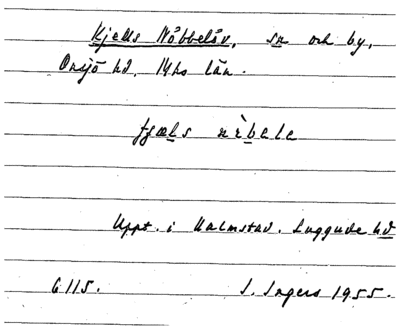 Kjells Nöbbelöv, sn och by,
Onsjö hd, Mhs län.
Uppt. i Kalmstad. Luggude hd
6115. I. Ingers 1955.